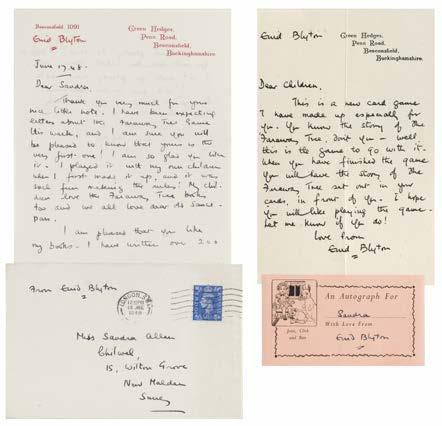 Beaconsfield 1091
Enid Blyton
Green Hedges,
Penn Road,
Beaconsfield,
Buckinghamshire.
June 17. 48.
Dear Sandra,
Thank you very much for your
nice little note. I have been expecting
letters about the Faraway Tree Game
this week, and I am sure you will
be pleased to know that yours is the
very first one! I am so glad you like
it. I played it with my own children
when I first made it up, and it was
such fun making the rules! My chil-
dren love the Faraway Tree books
too and we all love dear old Sauce-
pan.
I am pleased that you like
my books. I have written over 200
Enid Blyton
Green Hedges,
Penn Road,
Beaconsfield,
Buckinghamshire.
Dear Children,
This is a new card game
I have made up especially for
you. You know the story of the
Faraway Tree, don't you - well
this is the game to go with it.
When you have finished the game
you will have the story of the
Faraway Tree set out in your
cards, in front of you. I hope
you will like playing the game.
Let me know if you do!
Love from
Enid Blyton
From Enid Blyton
LONDON, S.W.
1948
Miss Sandra Allen
15, Wilton Grove
New Malden
Surrey
An Autograph For
Sandra
With Love From
Enid Blyton